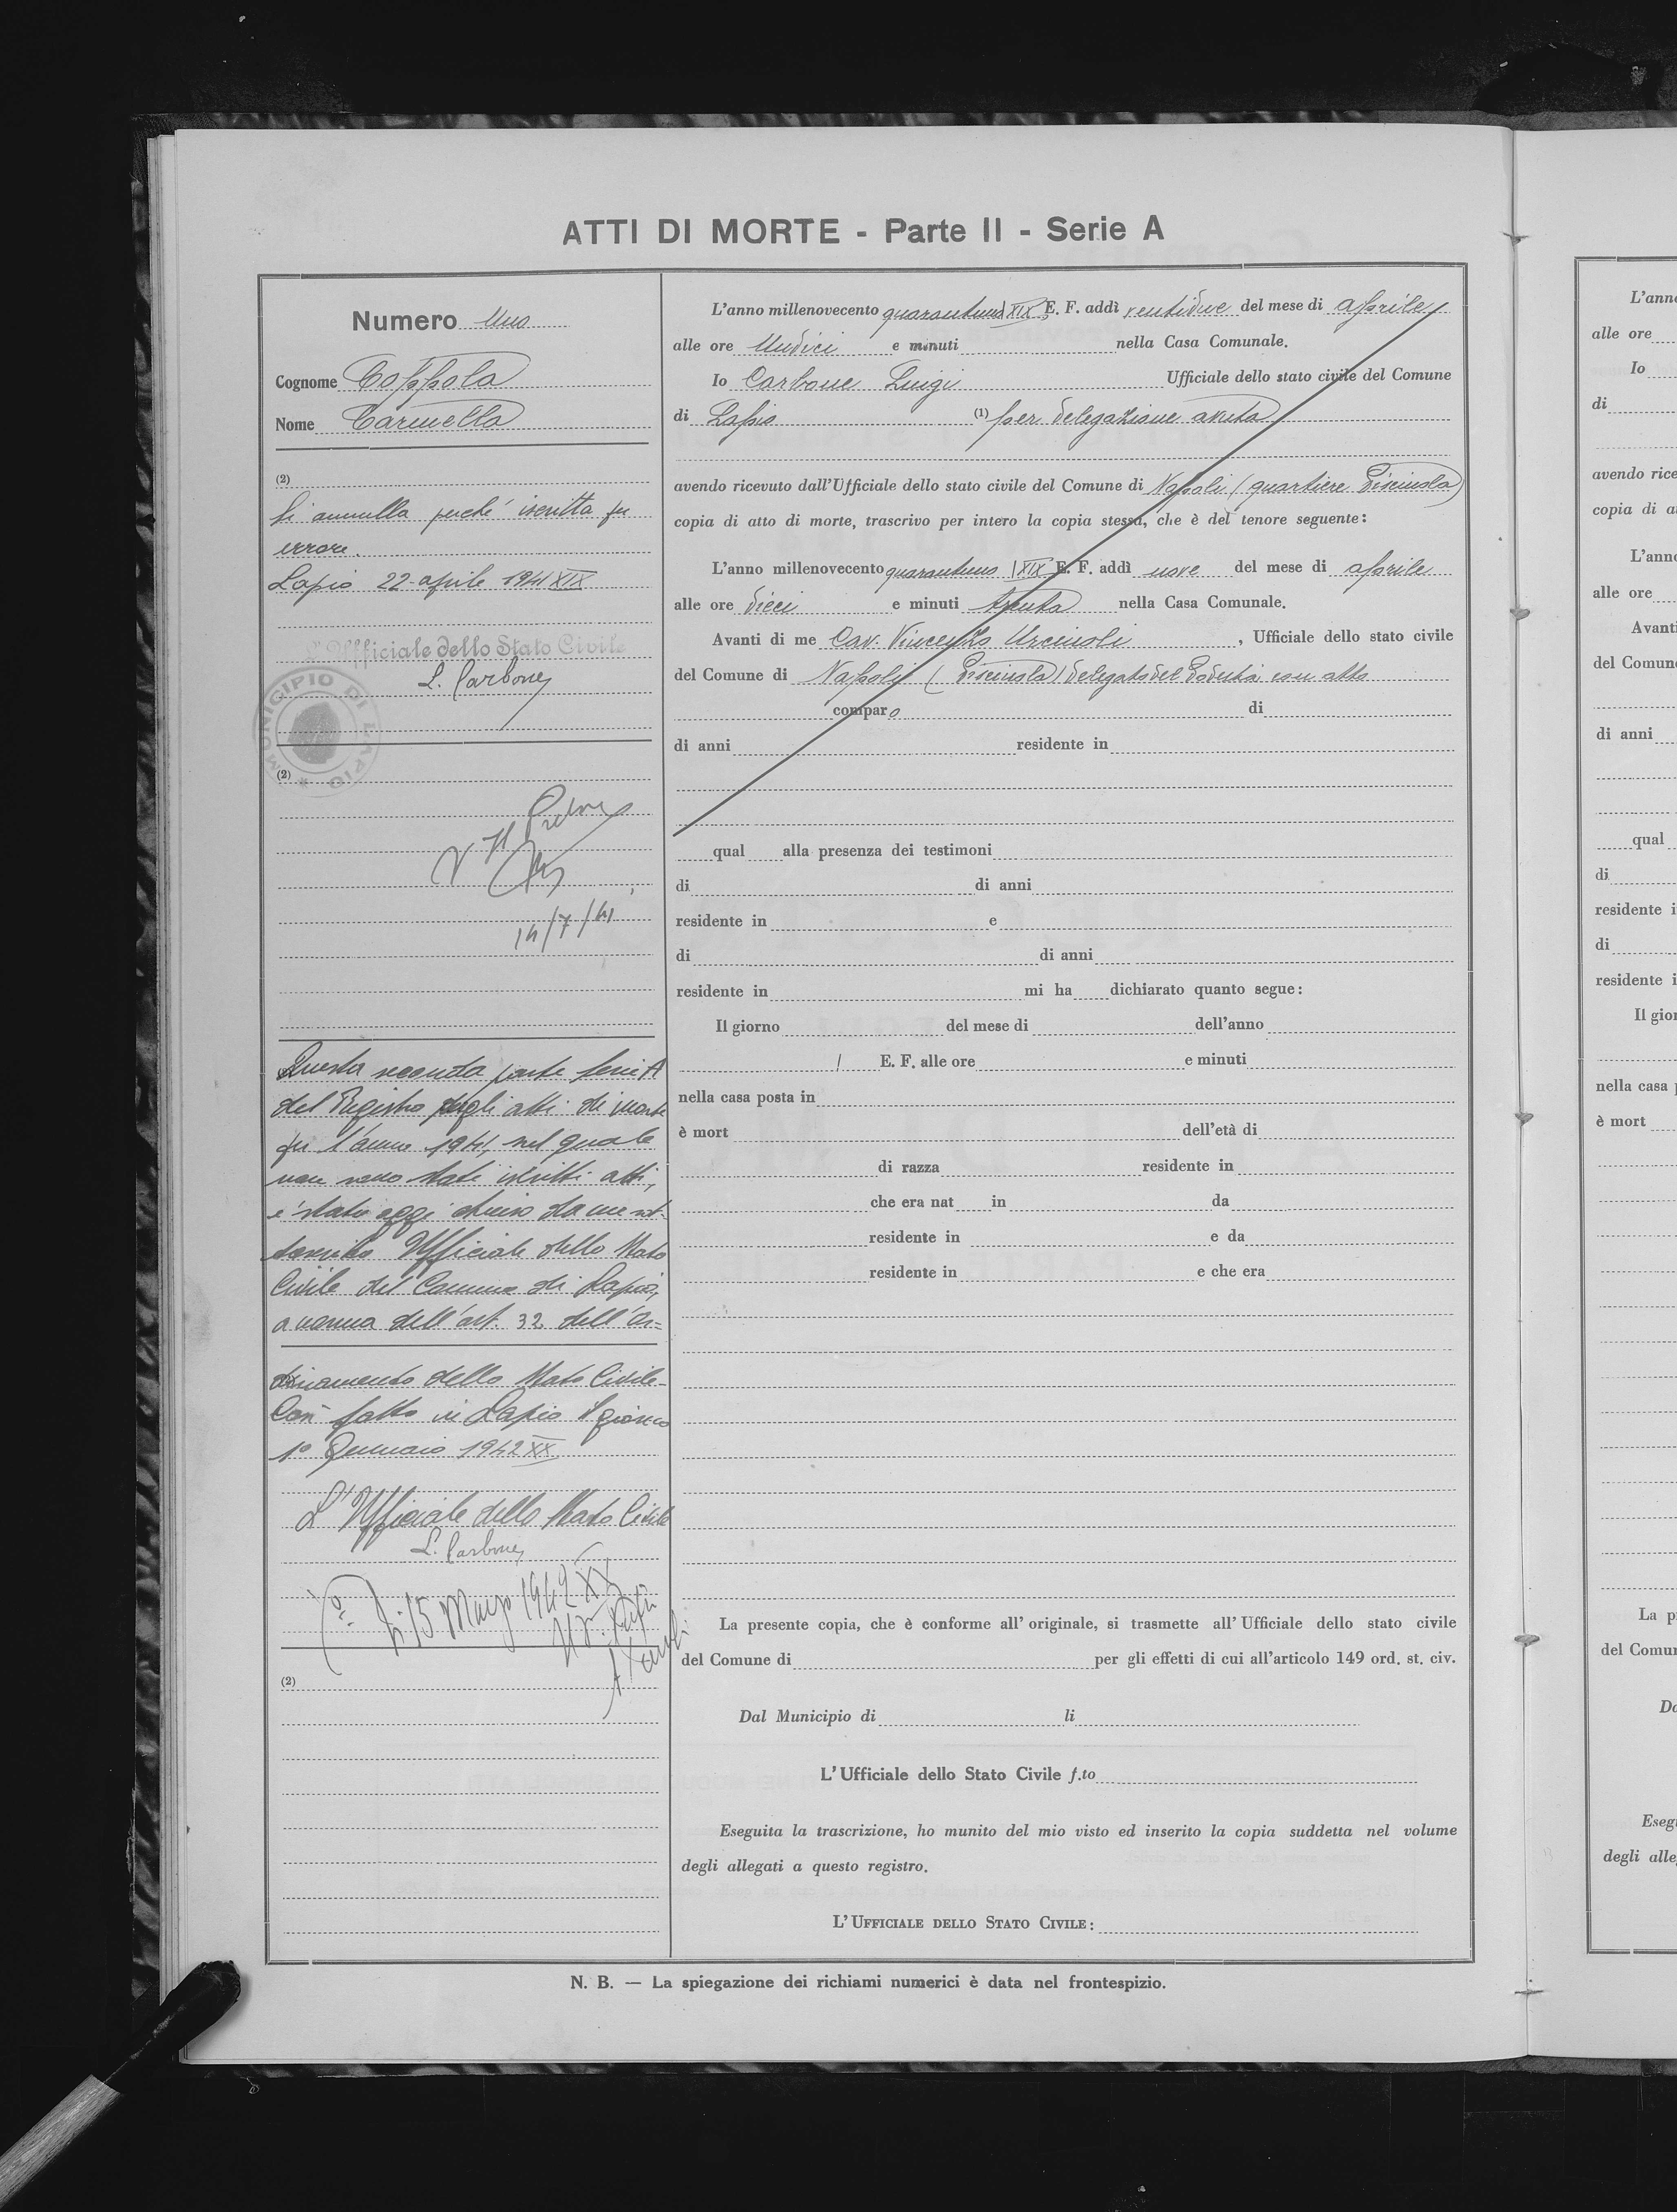 ATTI DI MORTE - Parte II - Serie A
Numero Uno
Cognome Coppola
Nome Carmella
(2)
Si annulla perché iscritta per
errore.
Lapio 22 aprile 1941 XIX
L'Ufficiale dello Stato Civile
L. Carbone
MUNICIPIO DI LAPIO
(2)
V. Il Pretore
14/7/41
Questa seconda parte serie A
del Registro degli atti di morte
per l'anno 1941, nel quale
non sono stati iscritti atti,
è stato oggi chiuso da me sot-
toscritto Ufficiale dello Stato
Civile del Comune di Lapio,
a norma dell'art. 32 dell'or=
dinamento dello Stato Civile.
Così fatto in Lapio il giorno
1º Gennaio 1942 XX
L'Ufficiale dello Stato Civile
L. Carbone
15 Marzo 1942 XX
(2)
L'anno millenovecento quarantuno XIX E. F. addì ventidue del mese di aprile
alle ore Undici e minuti nella Casa Comunale.
Io Carbone Luigi Ufficiale dello stato civile del Comune
di Lapio (1) per delegazione avuta
avendo ricevuto dall'Ufficiale dello stato civile del Comune di Napoli (quartiere Piscinola)
copia di atto di morte, trascrivo per intero la copia stessa, che è del tenore seguente:
L'anno millenovecento quarantuno XIX E. F. addì nove del mese di aprile
alle ore dieci e minuti trenta nella Casa Comunale.
Avanti di me Cav. Vincenzo Urciuoli, Ufficiale dello stato civile
del Comune di Napoli (Piscinola) delegato del Podestà con atto
comparo di
di anni residente in
qual alla presenza dei testimoni
di di anni
residente in e
di di anni
residente in mi ha dichiarato quanto segue:
Il giorno del mese di dell'anno
/ E. F. alle ore e minuti
nella casa posta in
è mort dell'età di
di razza residente in
che era nat in da
residente in e da
residente in e che era
La presente copia, che è conforme all'originale, si trasmette all'Ufficiale dello stato civile
del Comune di per gli effetti di cui all'articolo 149 ord. st. civ.
Dal Municipio di li
L'Ufficiale dello Stato Civile f.to
Eseguita la trascrizione, ho munito del mio visto ed inserito la copia suddetta nel volume
degli allegati a questo registro.
L'UFFICIALE DELLO STATO CIVILE:
N. B. — La spiegazione dei richiami numerici è data nel frontespizio.
L'anno
alle ore
Io
di
avendo rice
copia di a
L'anno
alle ore
Avanti
del Comune
di anni
qual
di
residente i
di
residente i
Il gior
nella casa p
è mort
La p
del Comu
Da
Eseg
degli alle